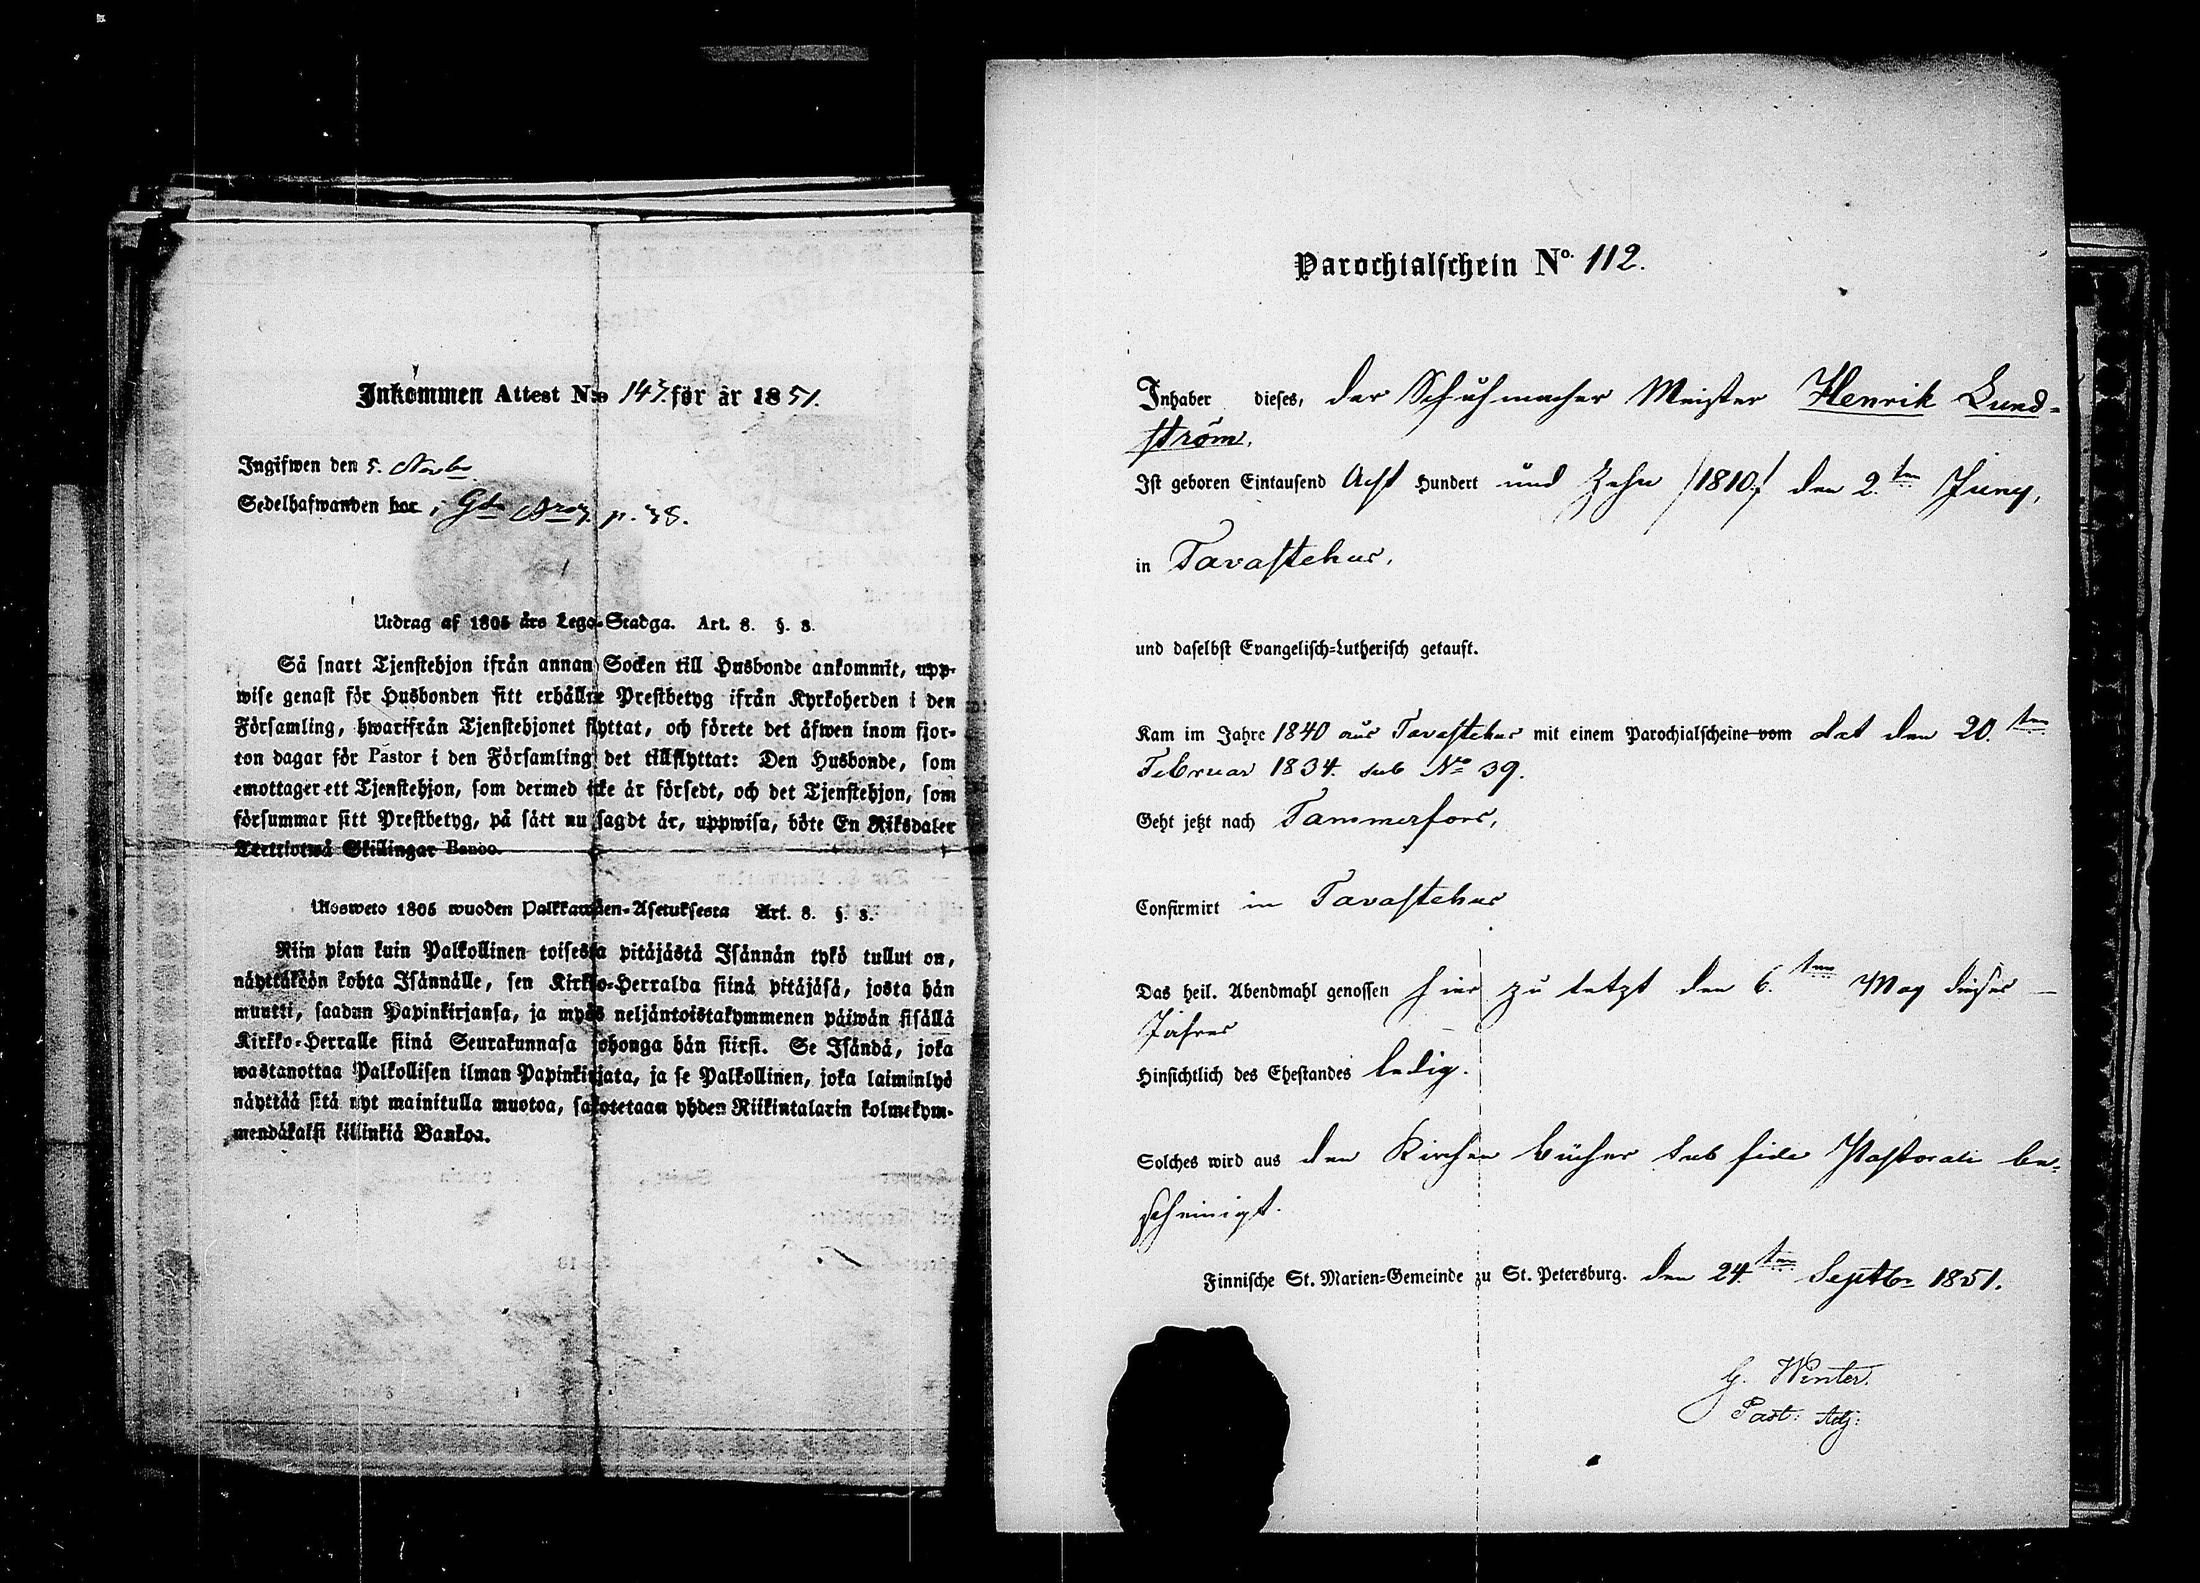 Inkommen Attest N:o 143. för år 1851.
Ingifwen den 5. Novbr
Sedelhafwanden bor i p. 38.
Utdrag af 1805 års Lego-Stadga. Art. 8. §. 8.
Så snart Tjenstehjon ifrån annan Socken till Husbonde ankommit, upp-
wise genast för Husbonden sitt erhållne Prestbetyg ifrån Kyrkoherden i den
Församling, hwarifrån Tjenstehjonet flyttat, och förete det äfwen inom fjor-
ton dagar för Pastor i den Församling det tillflyttat: Den Husbonde, som
emottager ett Tjenstehjon, som dermed icke är försedt, och det Tjenstehjon, som
försummar sitt Prestbetyg, på sätt nu sagdt är, uppwisa, böte En Riksdaler
Trettiotwå Skillingar Banco.
Ulosweto 1805 wuoden Palkkawäen-Asetuksesta Art. 8. §. 8.
Niin pian kuin Palkollinen toisesta pitäjästä Isännän tykö tullut on,
näyttäköön kohta Isännälle, sen Kirkko-Herralda siinä pitäjäsä, josta hän
muutti, saadun Papinkirjansa, ja myös neljäntoistakymmenen päiwän sisällä
Kirkko-Herralle siinä Seurakunnasa johonga hän siirsi. Se Isändä, joka
wastanottaa Palkollisen ilman Papinkirjata, ja se Palkollinen, joka laiminlyö
näyttää sitä nyt mainitulla muotoa, sakotetaan yhden Riikintalarin kolmekym-
mendäkaksi killinkiä Bankoa.
Parochialschein No. 112.
Inhaber dieses, der Schuhmacher Meister Henrik Lund-
ström.
Ist geboren Eintausend Acht Hundert und Zehn /1810/ den 2.ten Juny,
in Tavastehus,
und daselbst Evangelisch-Lutherisch getauft.
Kam im Jahre 1840 aus Tavastehus mit einem Parochialscheine vom dat den 20.ten
Februar 1834. sub No 39.
Geht jetzt nach Tammerfors,
Confirmirt in Tavastehus
Das heil. Abendmahl genossen hier zu letzt den 6.ten May dieses
Jahres
Hinsichtlich des Ehestandes ledig.
Solches wird aus den Kirchen bücher sub fide Pastorali be-
scheinigt.
Finnische St. Marien-Gemeinde zu St. Petersburg. den 24.ten Septbr 1851.
G. Winter.
Past: Adj: